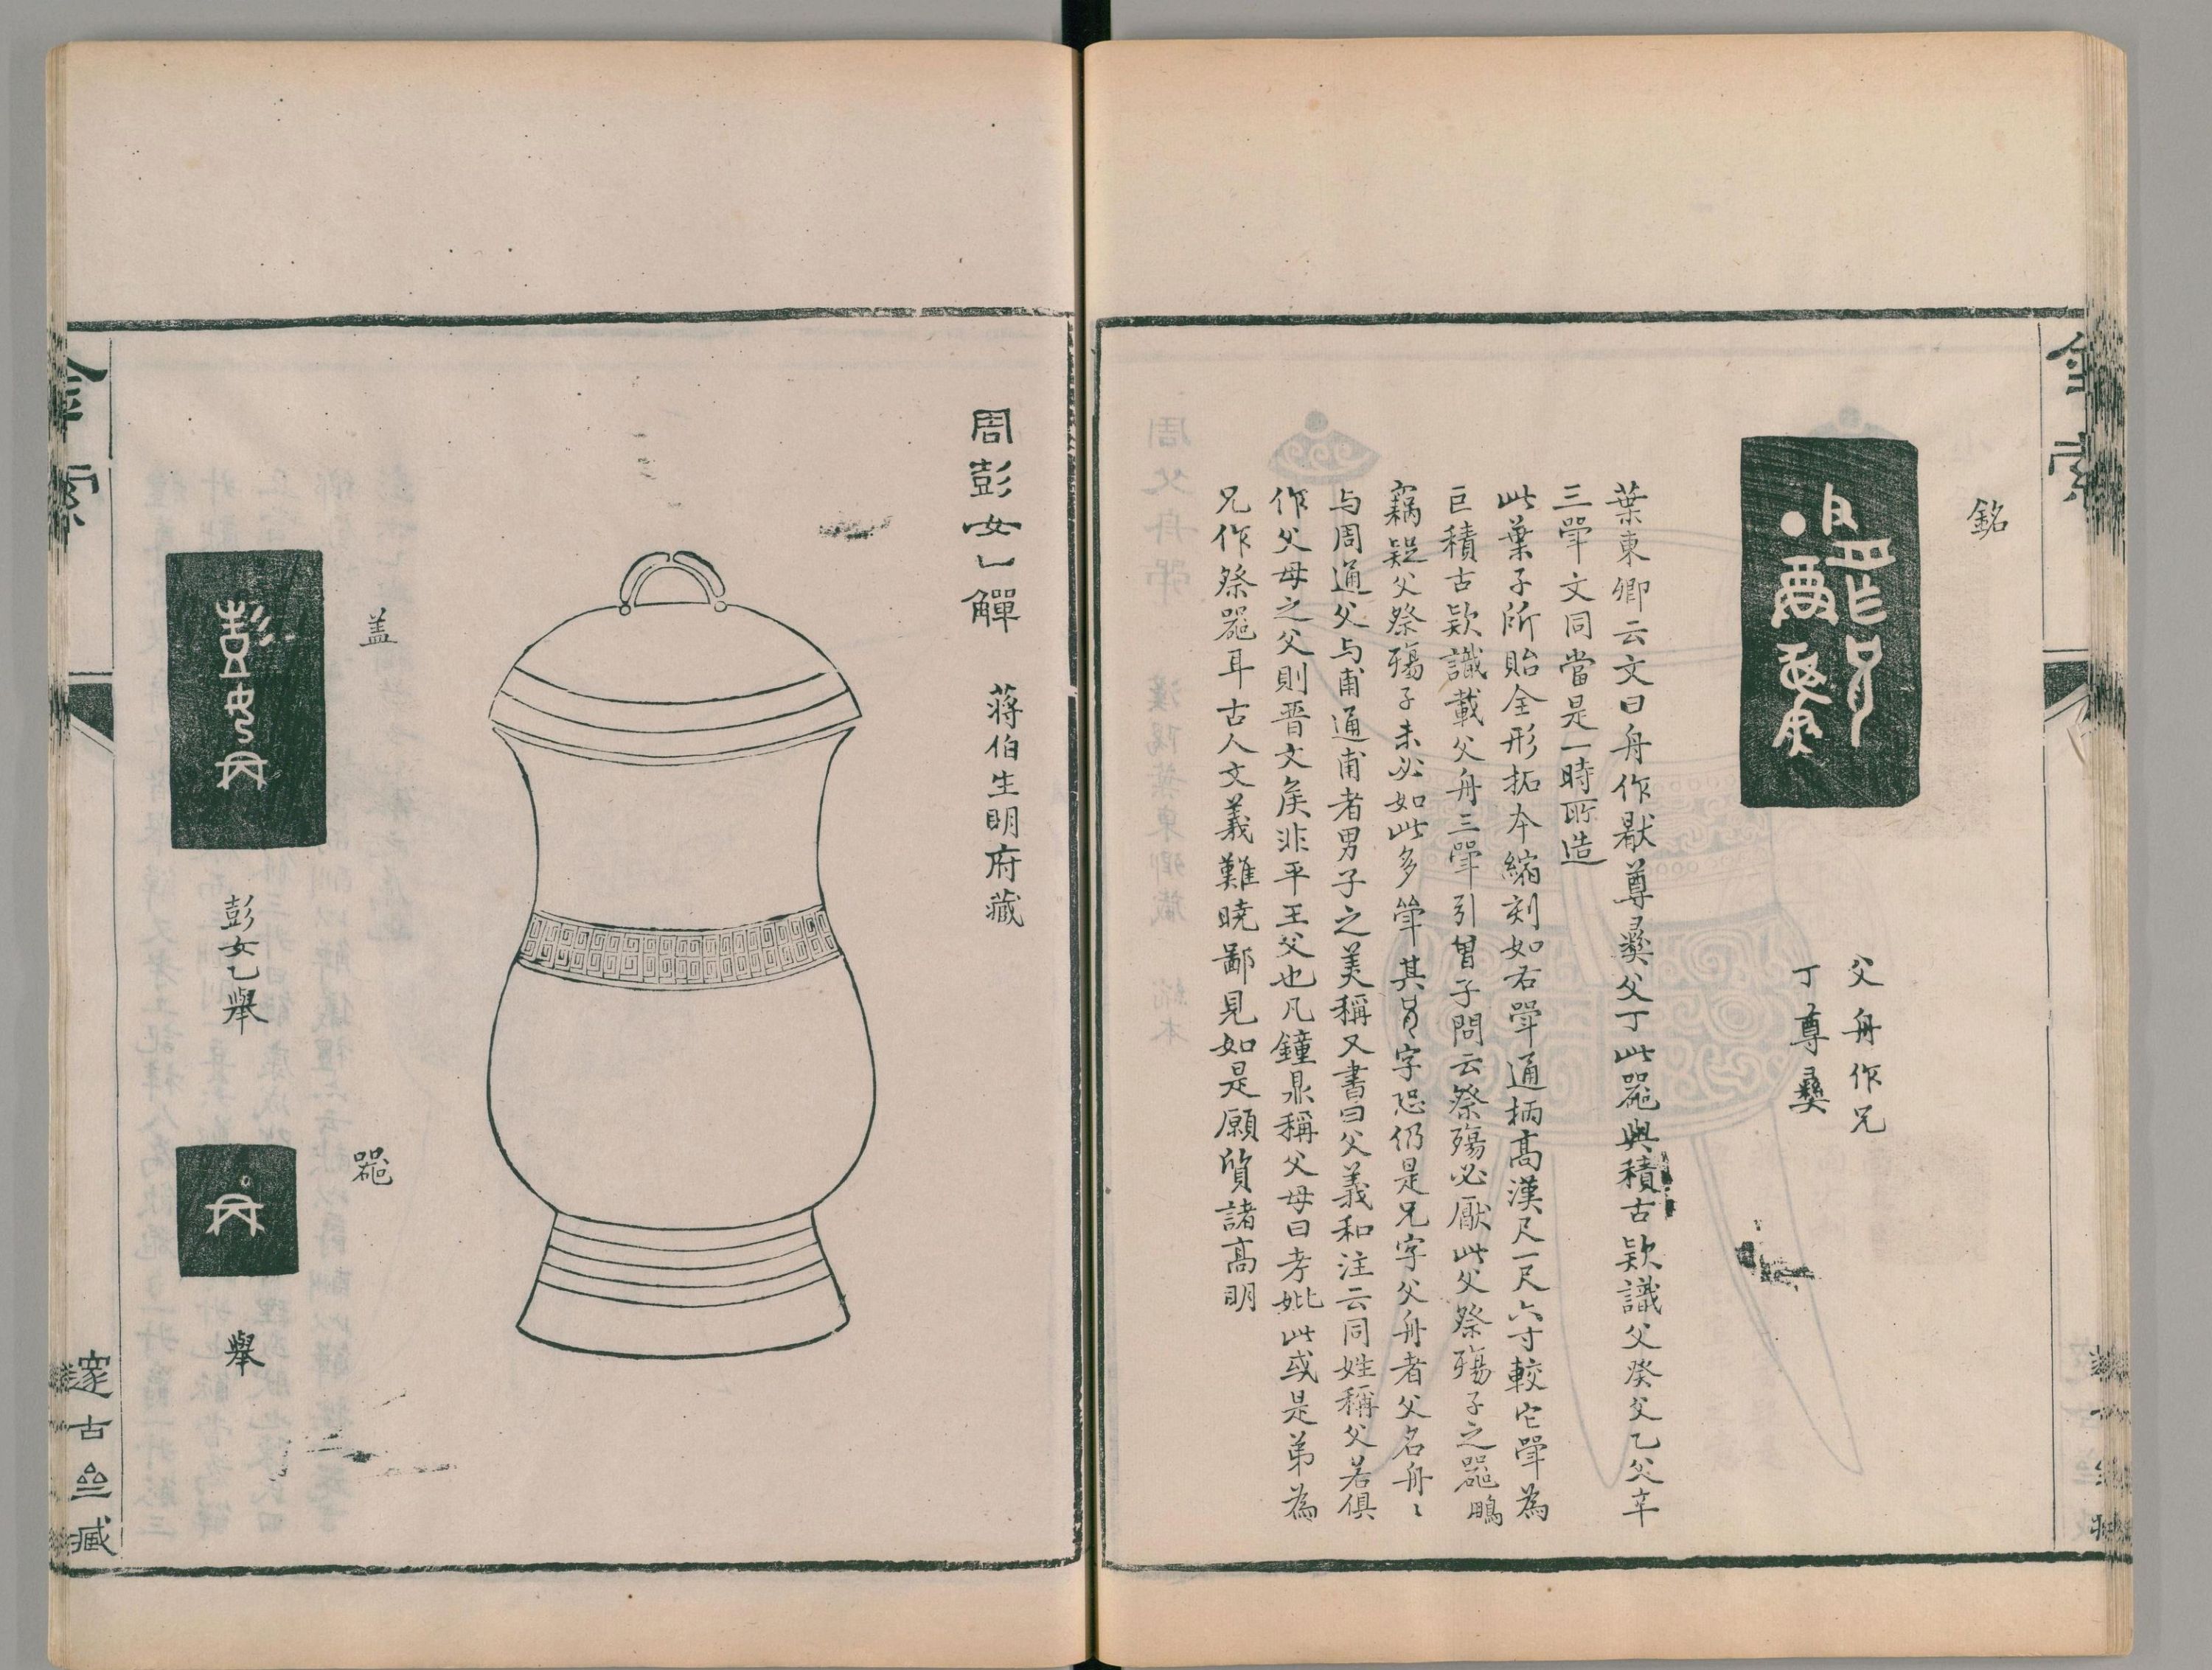 銘
父舟作兄
丁尊彝
葉東卿云文曰舟作厭尊彝父丁此器與積古款識父癸父乙父辛
三斝文同當是一時所造
此葉子所貽全形拓本縮刻如右斝通柄高漢尺一尺六寸較它斝為
巨積古款識載父舟三斝引曾子問云祭殤必厭此父祭殤子之器鵬
竊疑父祭殤子未必如此多斝其字恐仍是兄字父舟者父名舟〻
与周通父与甫通甫者男子之美稱又書曰父義和注云同姓稱父若俱
作父母之父則晋文矦非平王父也凡鐘鼎稱父母曰考妣此或是弟為
兄作祭器耳古人文義難曉鄙見如是願質諸高明
周彭女乀觶 蔣伯生明府藏
蓋
彭女乙舉
器
舉
金索
邃古亝藏